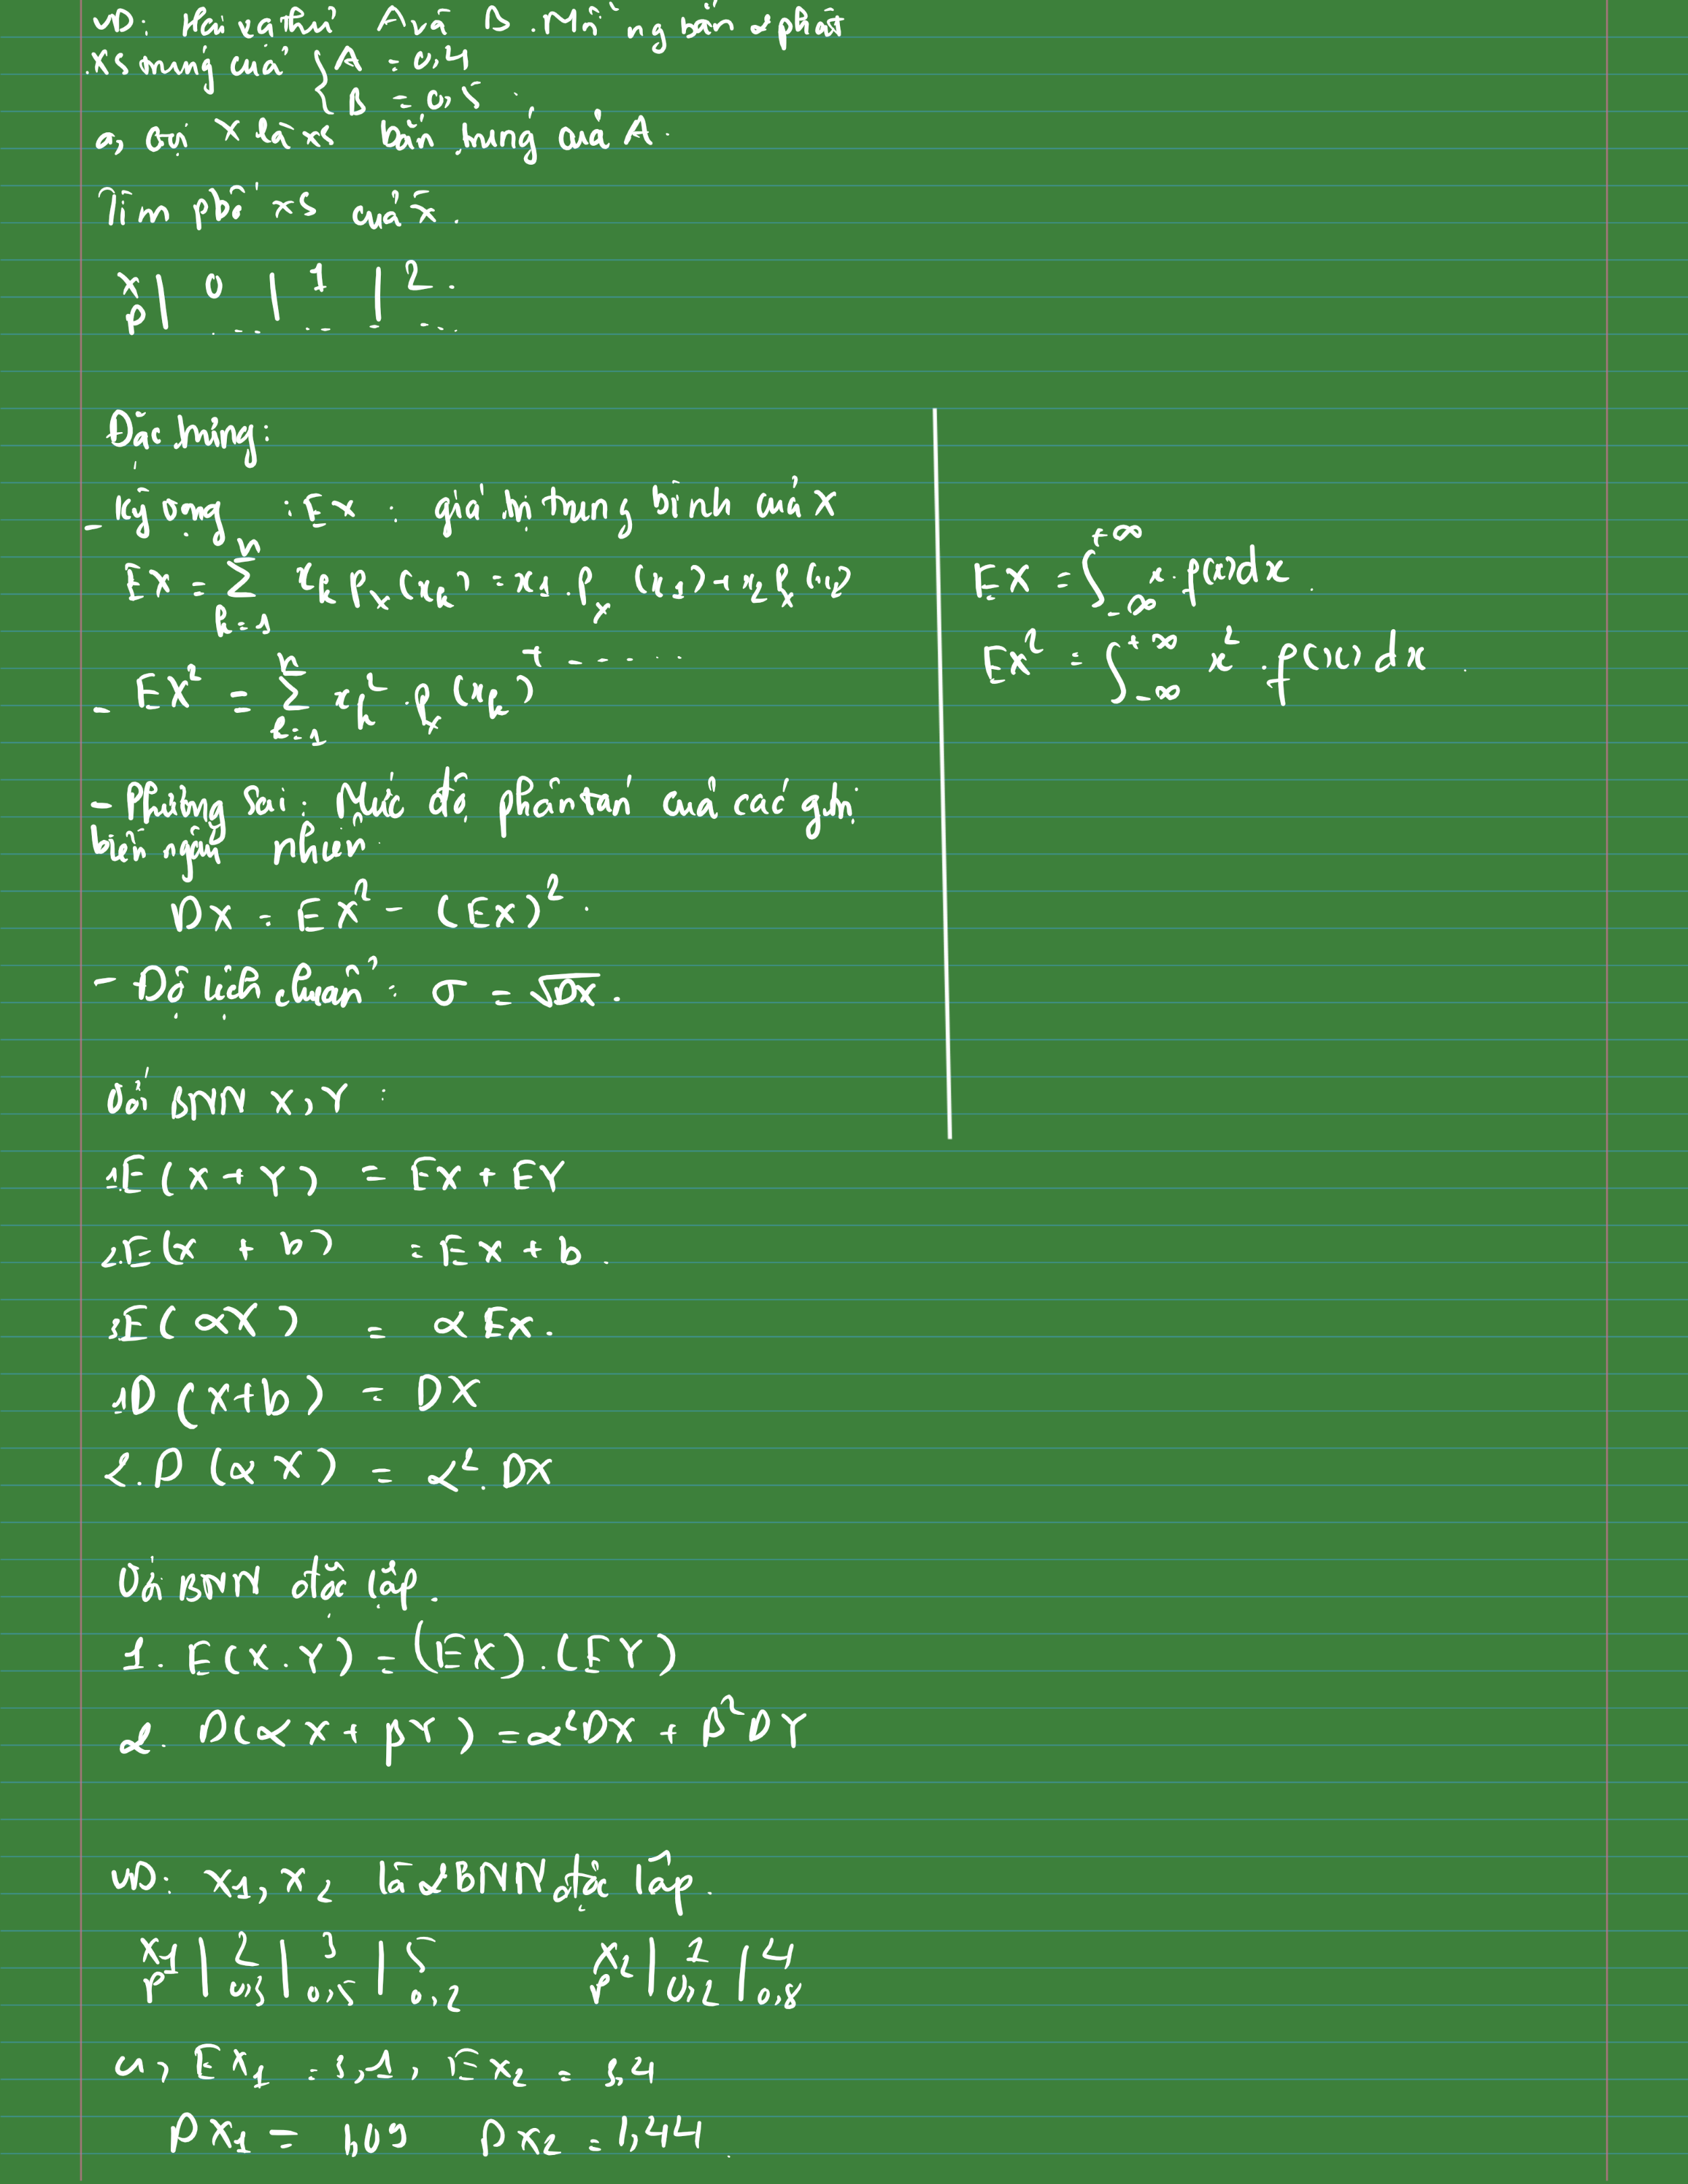 VD: Hai xạ thủ A và B. Mỗi ng bắn 2 phát
XS trúng của { A = 0,4
B = 0,5.
a, Gọi X là xs bắn trúng của A.
Tìm pbố xs của X.
X | 0 | 1 | 2.
P | ... ... ...
Đặc trưng:
- Kỳ vọng : EX : giá trị trung bình của X
EX = Σ_{k=1}^{n} x_k P_X(x_k) = x_1 . P_X (x_1) + x_2 P_X (x_2)
+ ......
- EX² = Σ_{k=1}^{n} x_k² . P_X (x_k)
- Phương sai : Mức độ phân tán của các gtri
biến ngẫu nhiên.
DX = EX² - (EX)².
- Độ lệch chuẩn : σ = √DX.
EX = ∫_{-∞}^{+∞} x . p(x) dx.
EX² = ∫_{-∞}^{+∞} x² . p(x) dx.
Với BNN X, Y :
1. E (X + Y) = EX + EY
2. E (X + b) = EX + b.
3. E (αX) = αEX.
1. D (X + b) = DX
2. D (αX) = α². DX
Với BNN độc lập.
1. E(X.Y) = (EX) . (EY)
2. D(αX + βY) = α²DX + β²DY
VD: X_1, X_2 là 2BNN độc lập.
X_1 | 2 | 3 | 5 X_2 | 1 | 4
P | 0,3 | 0,5 | 0,2 P | 0,2 | 0,8
a, EX_1 = 3,1, EX_2 = 3,4
DX_1 = 1,09 DX_2 = 1,44.